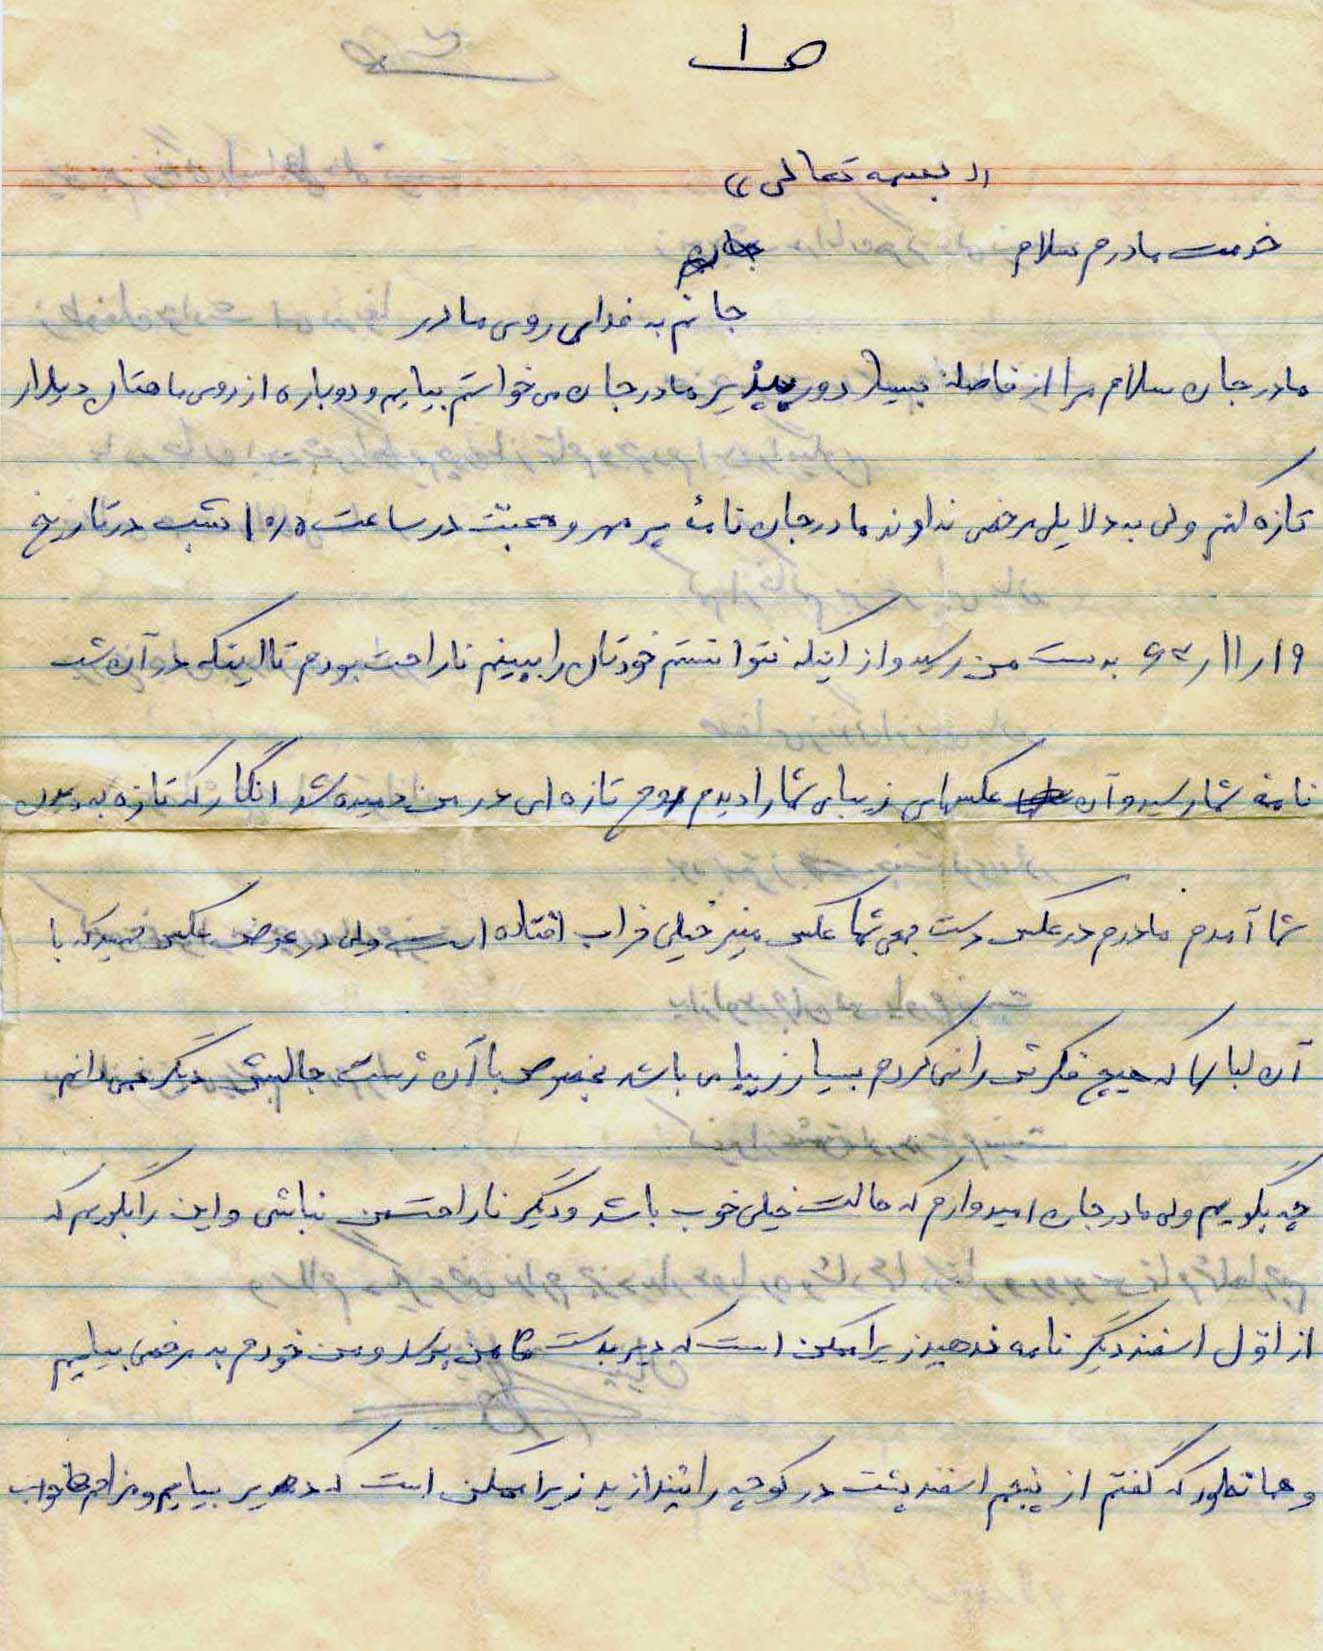 ص ۱
(( بسمه تعالی ))
خدمت مادرم سلام
جانم به فدای روی مادر
مادر جان سلام مرا از فاصله بسیار دور بپذیر مادر جان می خواستم بیایم و دوباره از روی ماهتان دیدار
تازه کنم ولی به دلایلی مرخصی نداوند مادر جان نامهٔ پر مهر و محبتت در ساعت ۱۰/۵ شب در تاریخ
۱۹ ر ۱۱ ر ۶۳ بدست من رسید و از اینکه نتوانستم خودتان را ببینم ناراحت بودم تا اینکه در آن شب
نامه شما رسید و آن عکسهای زیبای شما را دیدم روح تازه ای در من دمیده شد انگار که تازه به دیدن
شما آمدم مادرم در عکس دست جمعی شما عکس منیر خیلی خراب افتاده است ولی در عوض عکس با
آن لباسها که هیچ فکرش را نمی کردم بسیار زیبا می باشد بخصوص با آن ژست جالبش دیگر نمی دانم
چه بگویم ولی مادر جان امیدوارم که حالت خیلی خوب باشد و دیگر ناراحت من نباشی و این را بگویم که
از اوّل اسفند دیگر نامه ندهید زیرا ممکن است که دیر بدست من برسد و من خودم به مرخصی بیایم
و همانطور که گفتم از پنجم اسفند پشت در کوچه را نیندازید زیرا ممکن است که دیر بیایم و مزاحم خواب